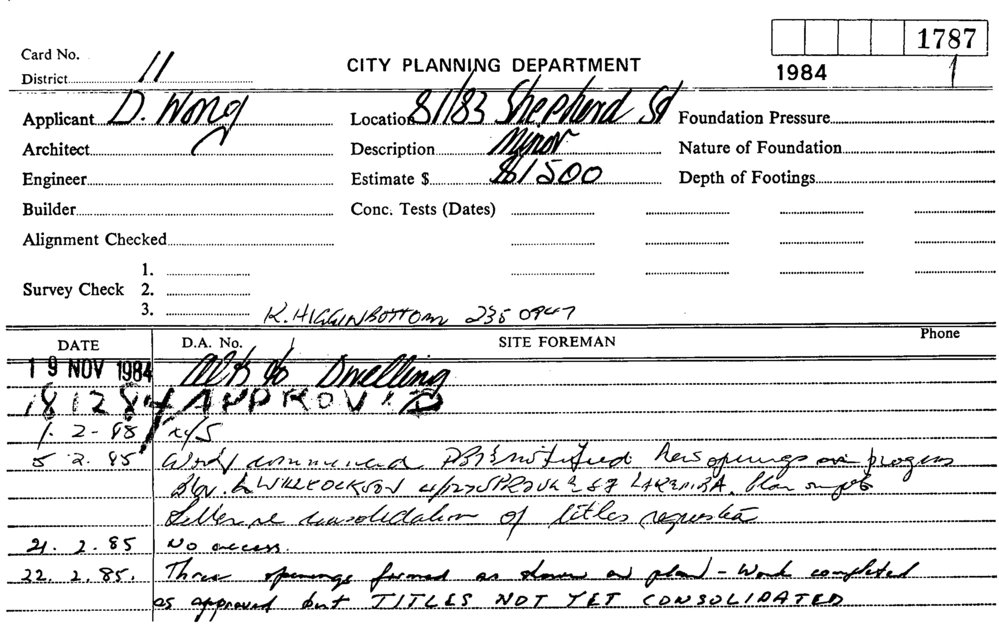 1787
Card No.
CITY PLANNING DEPARTMENT
1984
District 11
Applicant D. Wong
Location 81/83 Shepherd St
Foundation Pressure
Architect
Description Minor
Nature of Foundation
Engineer
Estimate $ $1500
Depth of Footings
Builder
Conc. Tests (Dates)
Alignment Checked
1.
Survey Check 2.
3.
K. HIGGINBOTTOM 235 0947
DATE D.A. No. SITE FOREMAN Phone
19 NOV 1984 Alts to Dwelling
18 12 84 APPROVED
1. 2-85 N/S
5 2. 85 Work commenced notified New openings in progress
Bldr. LAKEMBA. Plan on job
Letter re consolidation of titles requested
21. 2. 85 No access.
22. 2. 85. Three openings formed as shown on plan - Work completed
as approved but TITLES NOT YET CONSOLIDATED